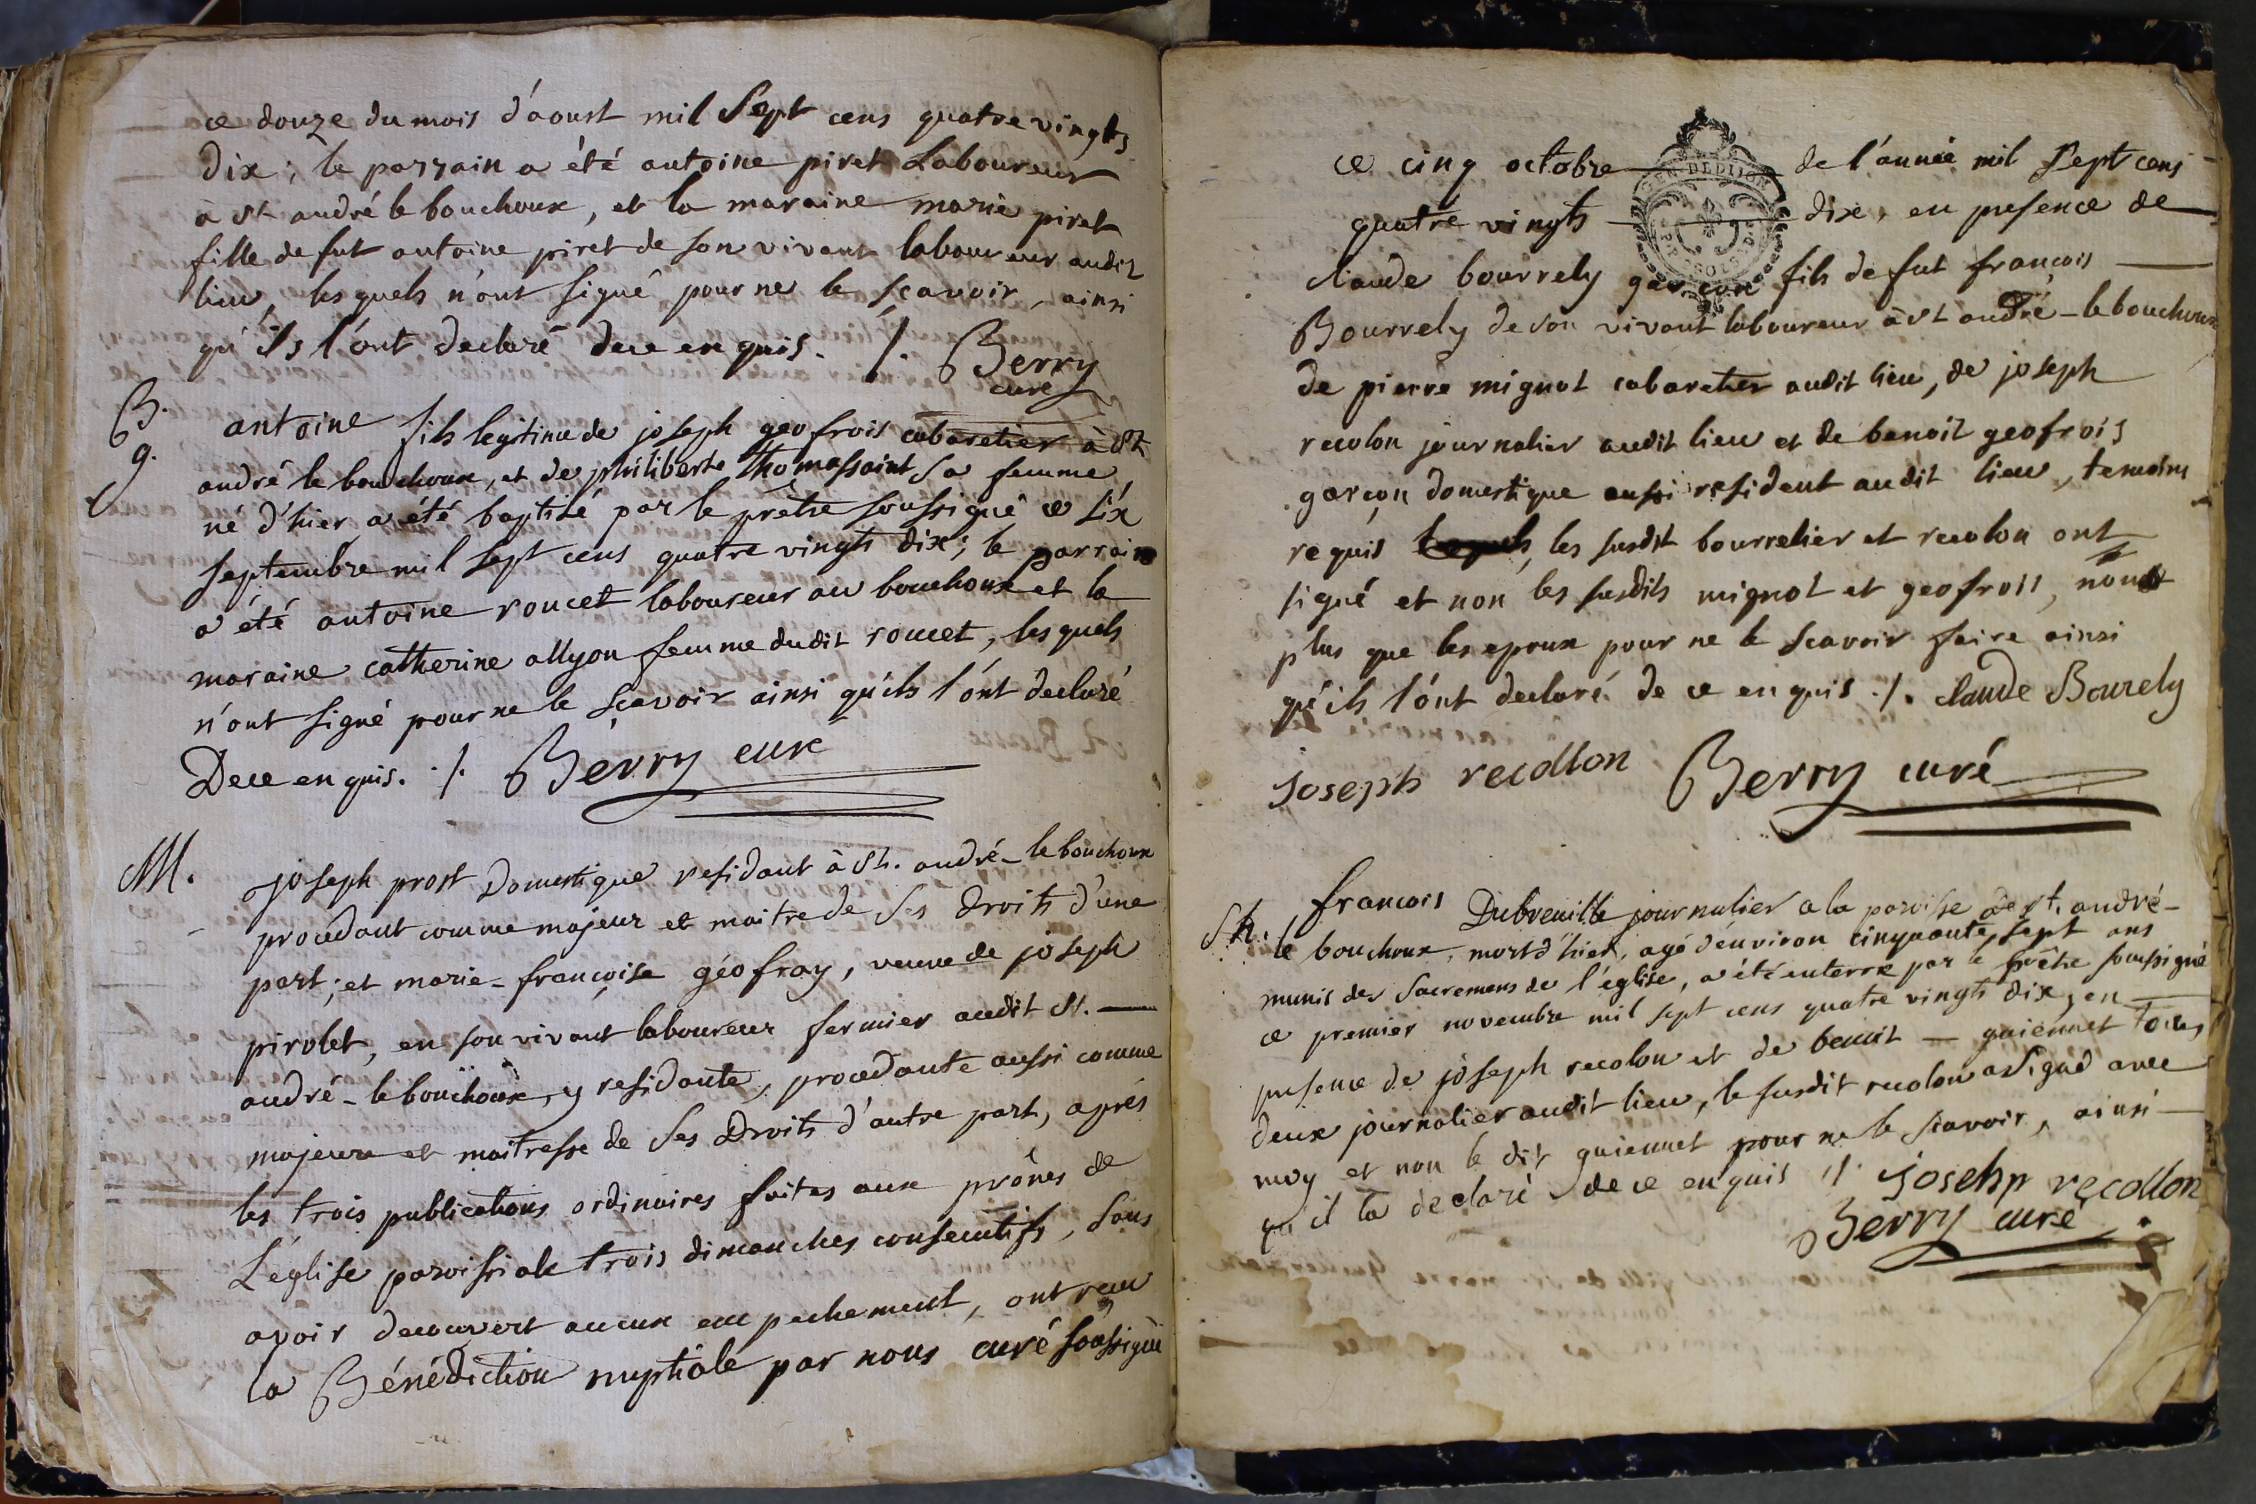 ce douze du mois d'aoust mil Sept cens quatre vingts
dix; le parrain a été antoine piret Laboureur
à St andré le bouchoux, et la maraine marie piret
fille de fut antoine piret de son vivant laboureur audit
lieu, lesquels n'ont signé pour ne le sçavoir, ainsi
qu'ils l'ont declaré dece enquis. /. Berry
curé
B.
g.
antoine fils legitime de joseph geofrois cabaretier à St
andré le bouchoux, et de philiberte thomassaint sa femme
né d'hier a été baptisé par le prêtre soussigné ce six
septembre mil sept cens quatre vingts dix; le parrain
a été antoine roncet laboureur au bouchoux et la
maraine catherine allyon femme dudit roncet, lesquels
n'ont signé pour ne le sçavoir ainsi qu'ils l'ont declaré
Dece enquis. ./. Berry curé
M.
joseph prost Domestique residant à St. andré-le bouchoux
procedant comme majeur et maitre de ses droits d'une
part; et marie-françoise géofray, veuve de joseph
pirolet, en son vivant laboureur fermier audit St.
andré-le bouchoux, y residante, procedante aussi comme
majeure et maitresse de ses Droits d'autre part, aprés
les trois publications ordinaires faites aux prônes de
L'église paroissiale trois dimanches consecutifs, sans
avoir decouvert aucun empechement, ont reçu
la Bénédiction nuptiale par nous curé soussigné
ce cinq octobre de l'année mil sept cens
GEN DE DIJON
quatre vingts dix, en presence de
claude bourrely garçon fils de fut françois
Bourrely de son vivant laboureur à St andré-le bouchoux
de pierre mignot cabaretier audit lieu, de joseph
recolon journalier audit lieu et de benoit geofrois
garçon domestique aussi resident audit lieu, temoins
requis les susdit bourrelier et recolon ont
signé et non les susdits mignot et geofrois, non
plus que les epoux pour ne le sçavoir faire ainsi
qu'ils l'ont declaré de ce enquis ./. claude Bourely
joseph recollon Berry curé
Sh.
françois Dubreuille journalier a la paroisse de st. andré-
le bouchoux, mort d'hier, agé d'environ cinquante sept ans
munis des Sacremens de l'église, a été enterré par le prêtre soussigné
ce premier novembre mil sept cens quatre vingts dix, en
presence de joseph recolon et de benoit guiennet tous
deux journalier audit lieu, le susdit recolon a signé avec
moy et non le dit guiennet pour ne le sçavoir, ainsi
qu'il la declaré de ce enquis ./. josehp recollon
Berry curé